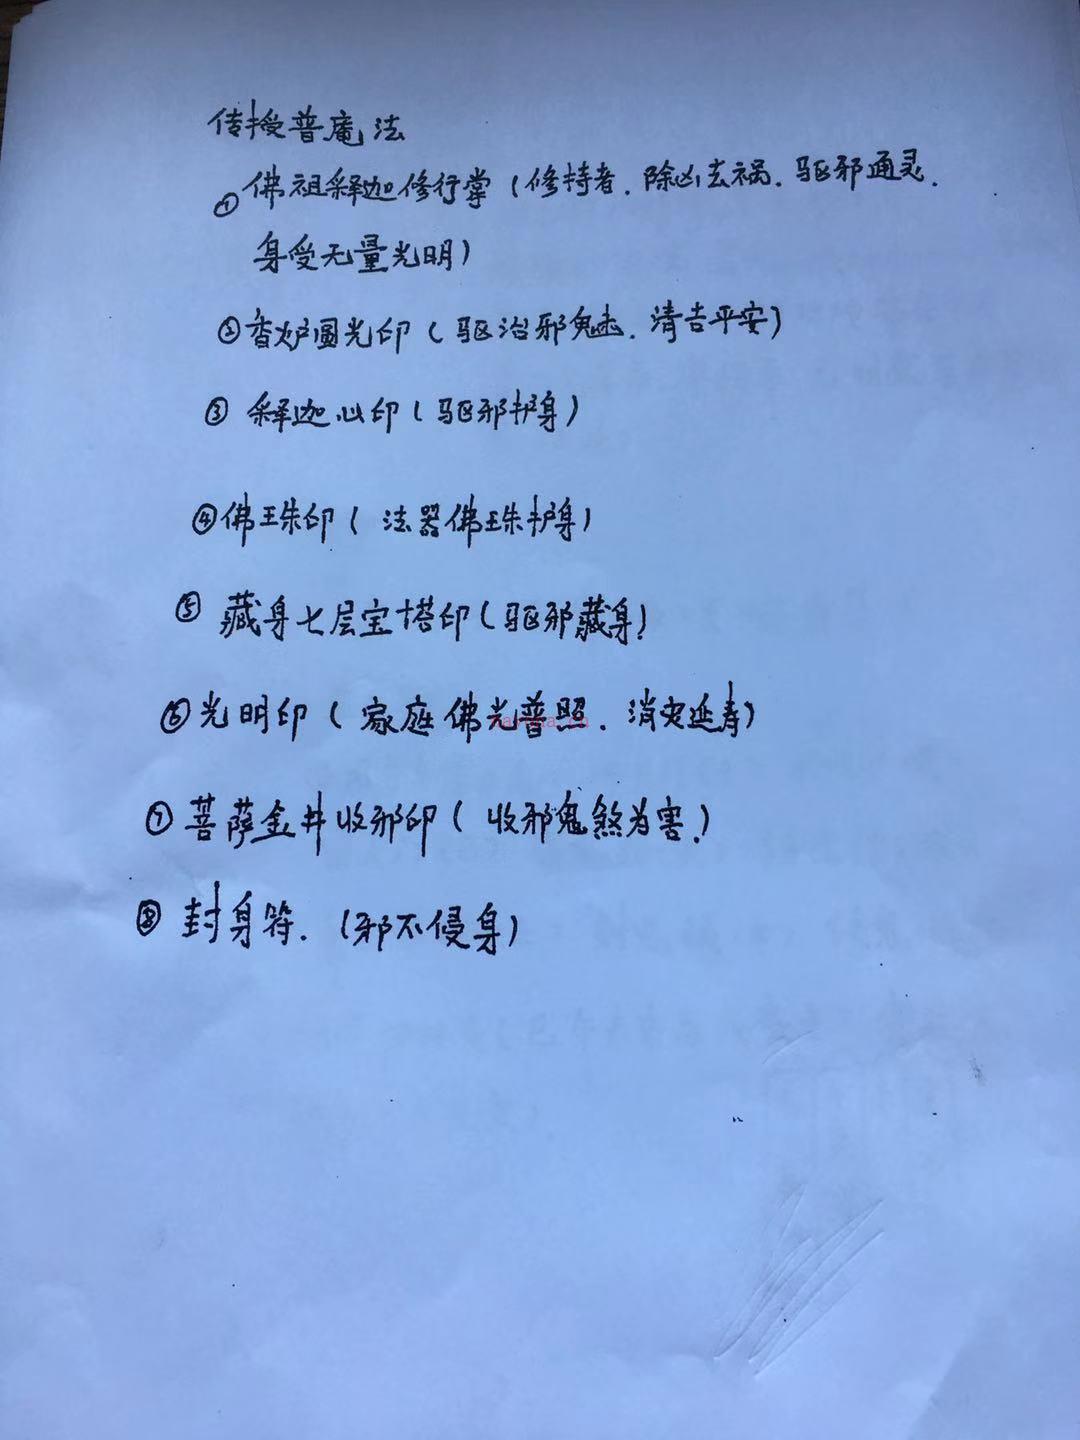 传授普庵法
① 佛祖释迦修行掌（修持者．除凶去祸．驱邪通灵．
身受无量光明）
② 香炉圆光印（驱治邪鬼未．清吉平安）
③ 释迦心印（驱邪护身）
④ 佛珠印（法器佛珠护身）
⑤ 藏身七层宝塔印（驱邪藏身）
⑥ 光明印（家庭佛光普照．消灾延寿）
⑦ 菩萨金井收邪印（收邪鬼煞为害．）
⑧ 封身符．（邪不侵身）